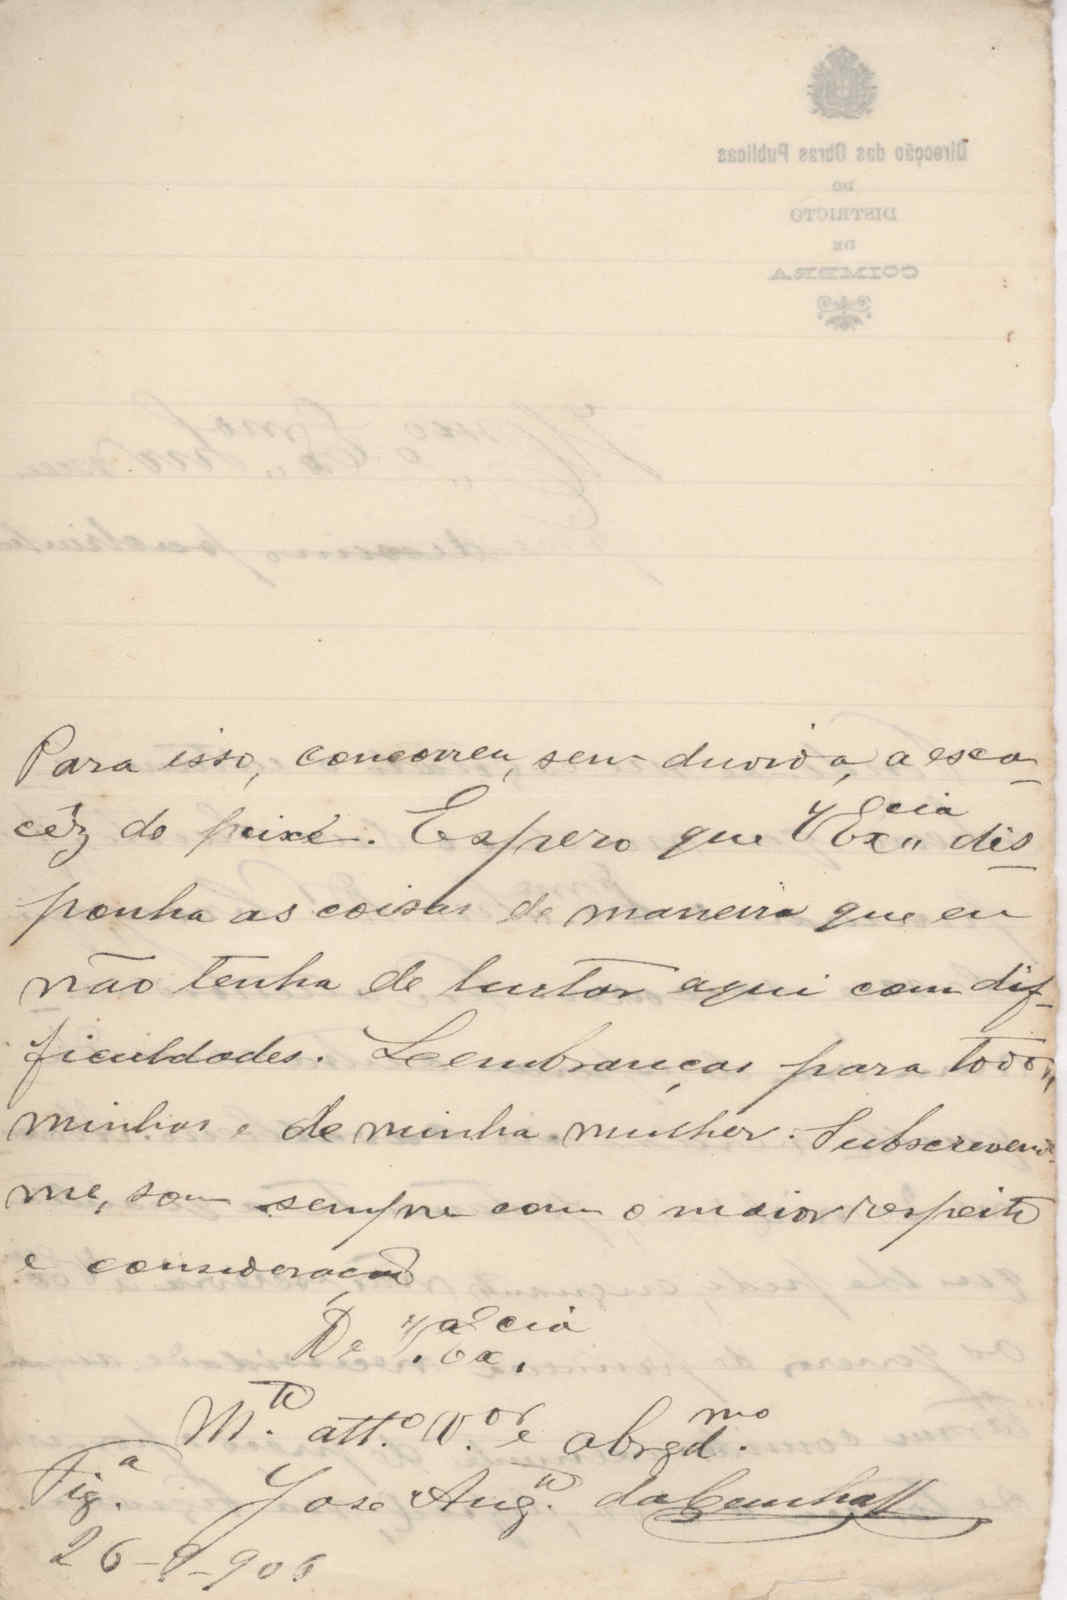 Direcção das Obras Publicas
DO
DISTRICTO
DE
COIMBRA
Para isso, concorreu, sem duvida, a esca-
cêz do peixe. Espero que V Ex.cia dis-
ponha as coisas de maneira que eu
não tenha de luctar aqui com dif-
ficuldades. Lembranças para todos,
minhas e de minha mulher. Subscrevendo-
me, sou sempre com o maior respeito
e consideração
De V.a Ex.cia
M.to att.o V.or e obrgd.mo
Fig.a Jose Aug.to da Cunha